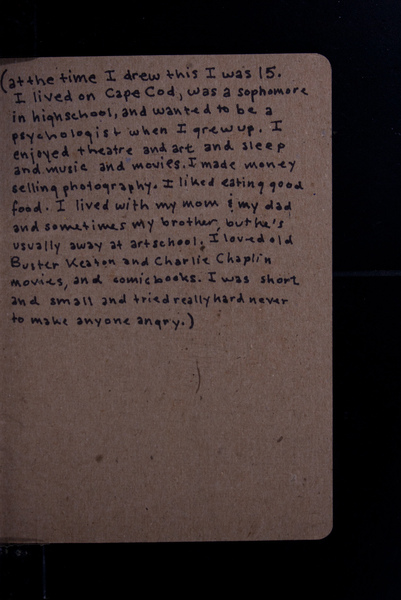 (at the time I drew this I was 15.
I lived on Cape Cod, was a sophomore
in highschool, and wanted to be a
psychologist when I grew up. I
enjoyed theatre and art and sleep
and music and movies. I made money
selling photography. I liked eating good
food. I lived with my mom & my dad
and sometimes my brother, but he's
usually away at art school. I loved old
Buster Keaton and Charlie Chaplin
movies, and comic books. I was short
and small and tried really hard never
to make anyone angry.)